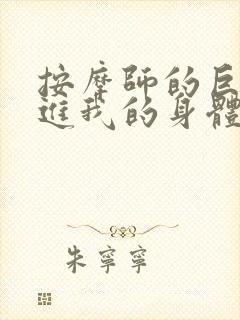 按摩師的巨
進我的身體
朱寧寧